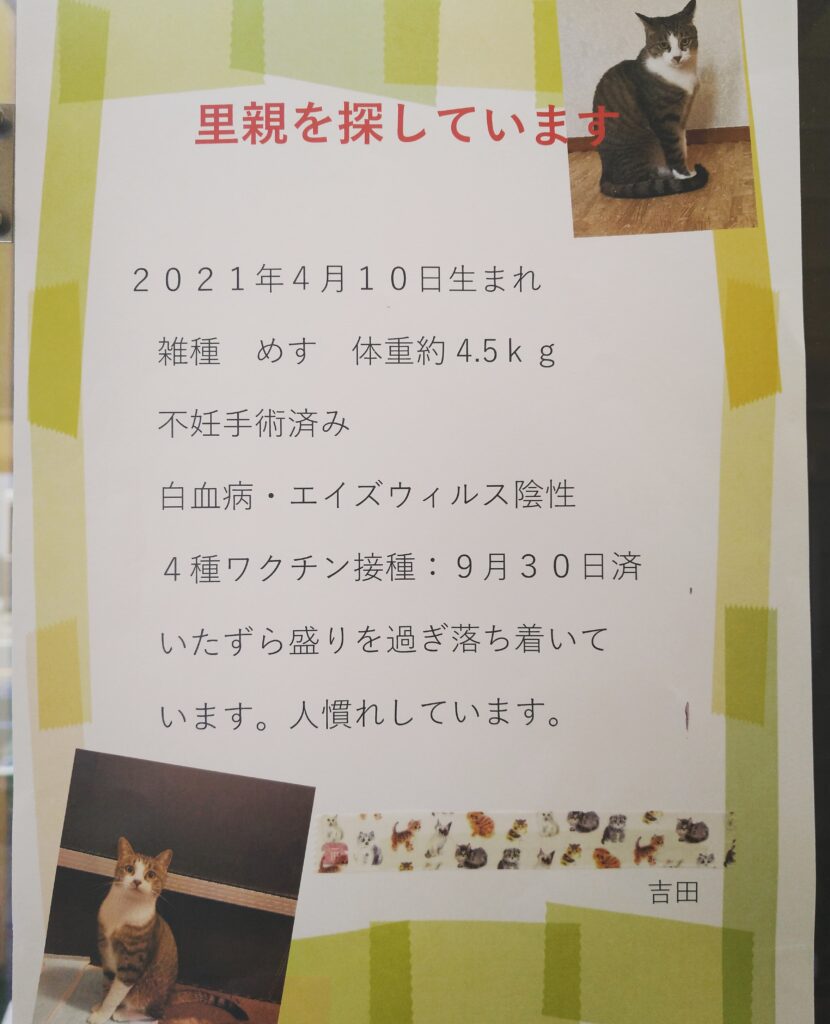 里親を探しています
２０２１年４月１０日生まれ
雑種　めす　体重約 4.5ｋｇ
不妊手術済み
白血病・エイズウィルス陰性
４種ワクチン接種：９月３０日済
いたずら盛りを過ぎ落ち着いて
います。人慣れしています。
吉田